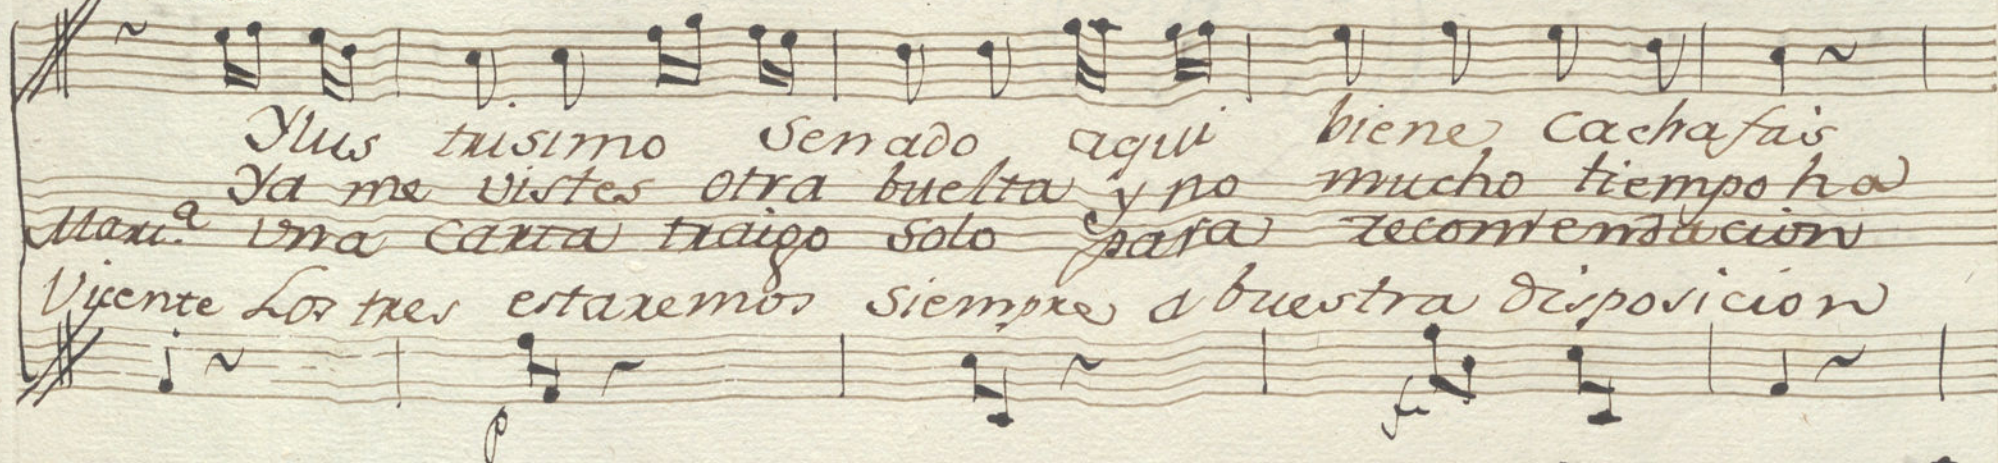 Ylus trisimo Senado aqui biene Cachafais
Ya me vistes otra buelta y no mucho tiempo ha
Mari.ª vna carta traigo solo para recomendacion
Vicente Los tres estaremos siempre a buestra disposicion
p f